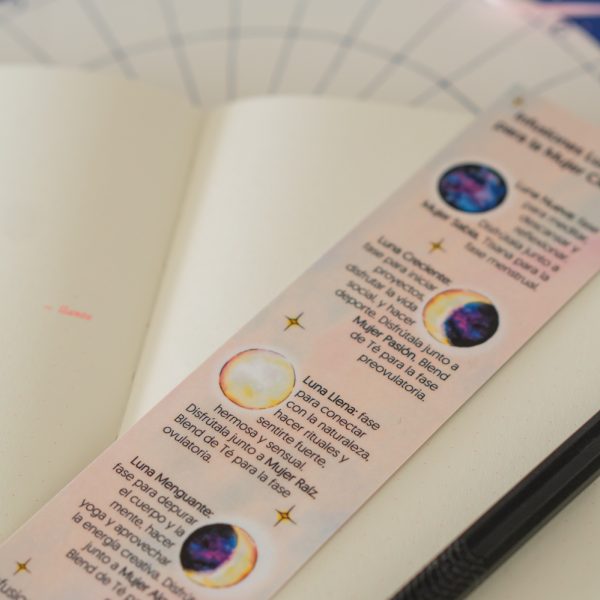 Infusiones
para la Mujer
Luna Nueva: fase
para meditar,
descansar y
reflexionar.
Disfrútala junto a
Mujer Sabia, Tisana para la
fase menstrual.
Luna Creciente:
fase para iniciar
proyectos,
disfrutar la vida
social, y hacer
deporte. Disfrútala junto a
Mujer Pasión, Blend
de Té para la fase
preovulatoria.
Luna Llena: fase
para conectar
con la naturaleza,
hacer rituales y
sentirte fuerte,
hermosa y sensual.
Disfrútala junto a Mujer Raíz,
Blend de Té para la fase
ovulatoria.
Luna Menguante:
fase para depurar
el cuerpo y la
mente, hacer
yoga y aprovechar
la energía creativa.
junto a Mujer
Blend de Té para